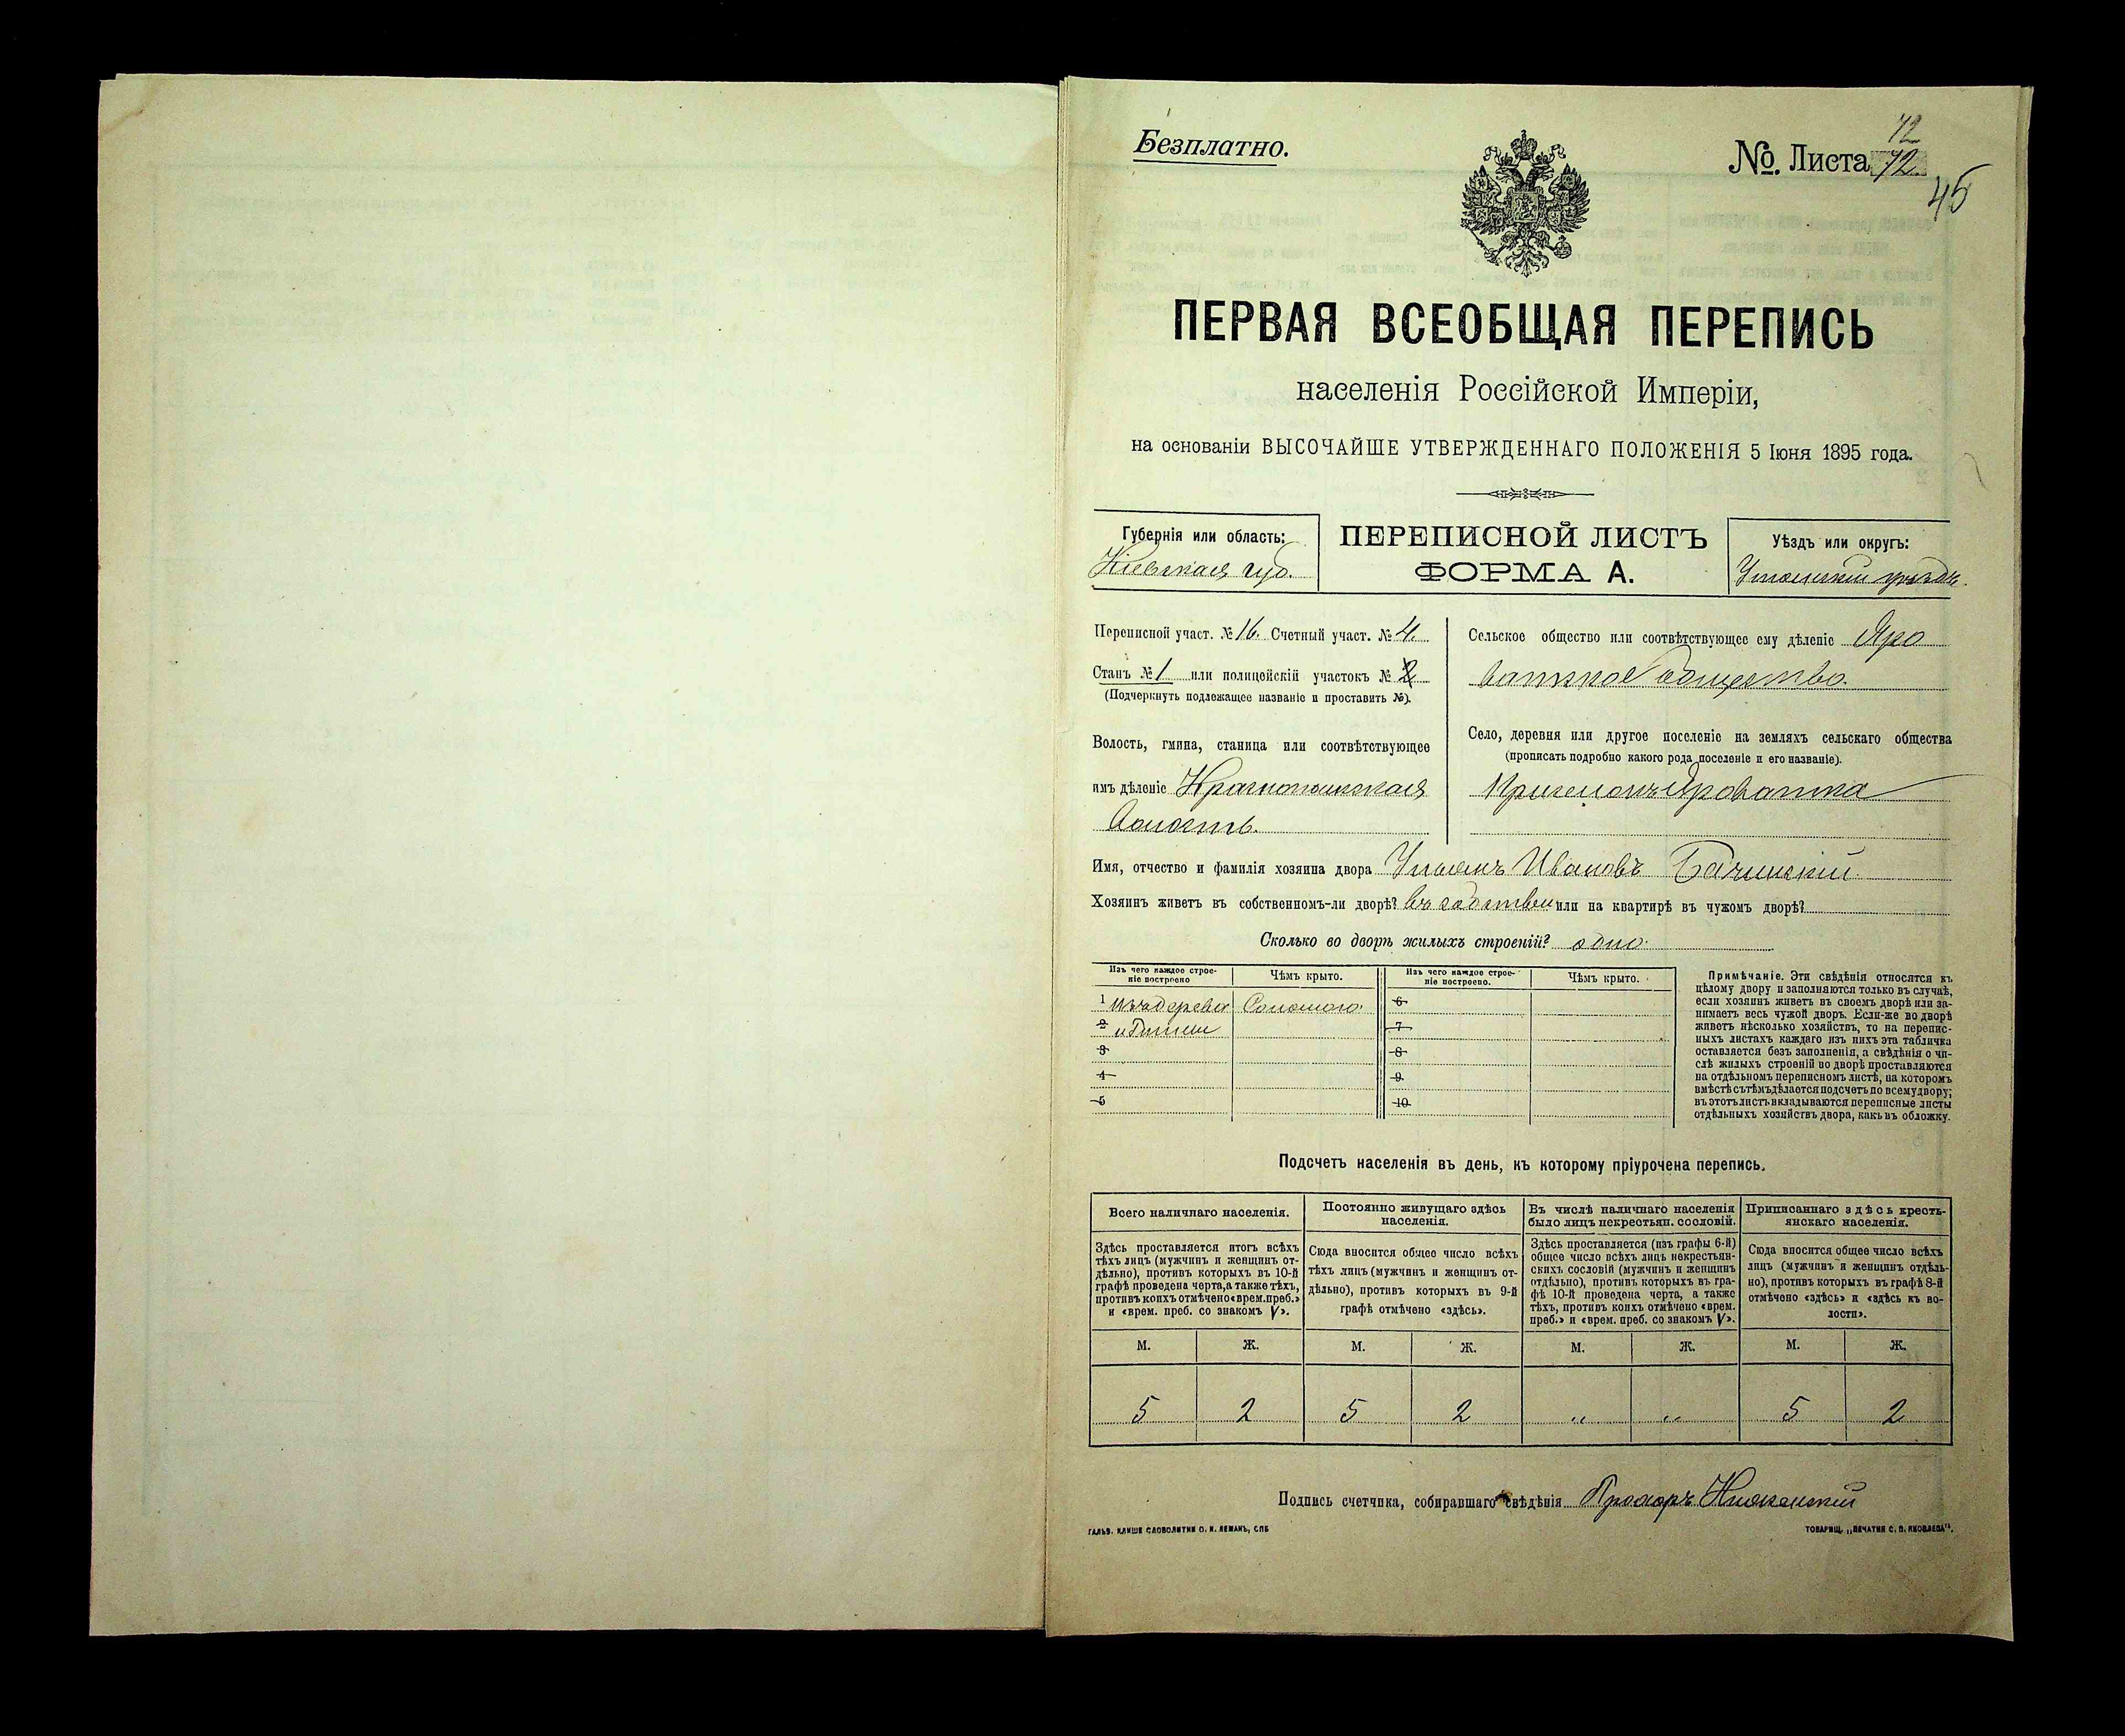 Безплатно.
№ Листа 72
72
45
ПЕРВАЯ ВСЕОБЩАЯ ПЕРЕПИСЬ
населенія Россійской Имперіи,
на основаніи ВЫСОЧАЙШЕ УТВЕРЖДЕННАГО ПОЛОЖЕНІЯ 5 Іюня 1895 года.
Губернія или область:
Кіевская губ.
ПЕРЕПИСНОЙ ЛИСТЪ
ФОРМА А.
Уѣздъ или округъ:
Уманскій уѣздъ.
Переписной участ. № 16. Счетный участ. № 4.
Станъ № 1 или полицейскій участокъ № 2
(Подчеркнуть подлежащее названіе и проставить №).
Волость, гмина, станица или соотвѣтствующее
имъ дѣленіе
Волость.
Сельское общество или соотвѣтствующее ему дѣленіе Яро
ватское общество.
Село, деревня или другое поселеніе на земляхъ сельскаго общества
(прописать подробно какого рода поселеніе и его названіе).
Яроватка
Имя, отчество и фамилія хозяина двора Ульянъ Ивановъ Бачинскій
Хозяинъ живетъ въ собственномъ-ли дворѣ? въ собствен или на квартирѣ въ чужомъ дворѣ?
Сколько во дворѣ жилыхъ строеній? одно.
Изъ чего каждое строе-
ніе построено
Чѣмъ крыто.
Изъ чего каждое строе-
ніе построено.
Чѣмъ крыто.
1 изъ дерева Соломою
2 и глины
3
4
5
6
7
8
9
10
Примѣчаніе. Эти свѣдѣнія относятся къ
цѣлому двору и заполняются только въ случаѣ,
если хозяинъ живетъ въ своемъ дворѣ или за-
нимаетъ весь чужой дворъ. Если-же во дворѣ
живетъ нѣсколько хозяйствъ, то на перепис-
ныхъ листахъ каждаго изъ нихъ эта табличка
оставляется безъ заполненія, а свѣдѣнія о чи-
слѣ жилыхъ строеній во дворѣ проставляются
на отдѣльномъ переписномъ листѣ, на которомъ
вмѣстѣ съ тѣмъ дѣлается подсчетъ по всему двору;
въ этотъ листъ вкладываются переписные листы
отдѣльныхъ хозяйствъ двора, какъ въ обложку.
Подсчетъ населенія въ день, къ которому пріурочена перепись.
Всего наличнаго населенія.
Здѣсь проставляется итогъ всѣхъ
тѣхъ лицъ (мужчинъ и женщинъ от-
дѣльно), противъ которыхъ въ 10-й
графѣ проведена черта, а также тѣхъ,
противъ коихъ отмѣчено «врем. преб.»
и «врем. преб. со знакомъ V».
Постоянно живущаго здѣсь
населенія.
Сюда вносится общее число всѣхъ
тѣхъ лицъ (мужчинъ и женщинъ от-
дѣльно), противъ которыхъ въ 9-й
графѣ отмѣчено «здѣсь».
Въ числѣ наличнаго населенія
было лицъ некрестьян. сословій.
Здѣсь проставляется (изъ графы 6-й)
общее число всѣхъ лицъ некрестьян-
скихъ сословій (мужчинъ и женщинъ
отдѣльно), противъ которыхъ въ гра-
фѣ 10-й проведена черта, а также
тѣхъ, противъ коихъ отмѣчено «врем.
преб.» и «врем. преб. со знакомъ V».
Приписаннаго здѣсь кресть-
янскаго населенія.
Сюда вносится общее число всѣхъ
лицъ (мужчинъ и женщинъ отдѣль-
но), противъ которыхъ въ графѣ 8-й
отмѣчено «здѣсь» и «здѣсь къ во-
лости».
М. Ж. М. Ж. М. Ж. М. Ж.
5 2 5 2 " " 5 2
Подпись счетчика, собиравшаго свѣдѣнія Прохоръ
ГАЛЬВ. КЛИШЕ СЛОВОЛИТНИ О. И. ЛЕМАНЪ, СПБ
ТОВАРИЩ. „ПЕЧАТНЯ С. П. ЯКОВЛЕВА“.